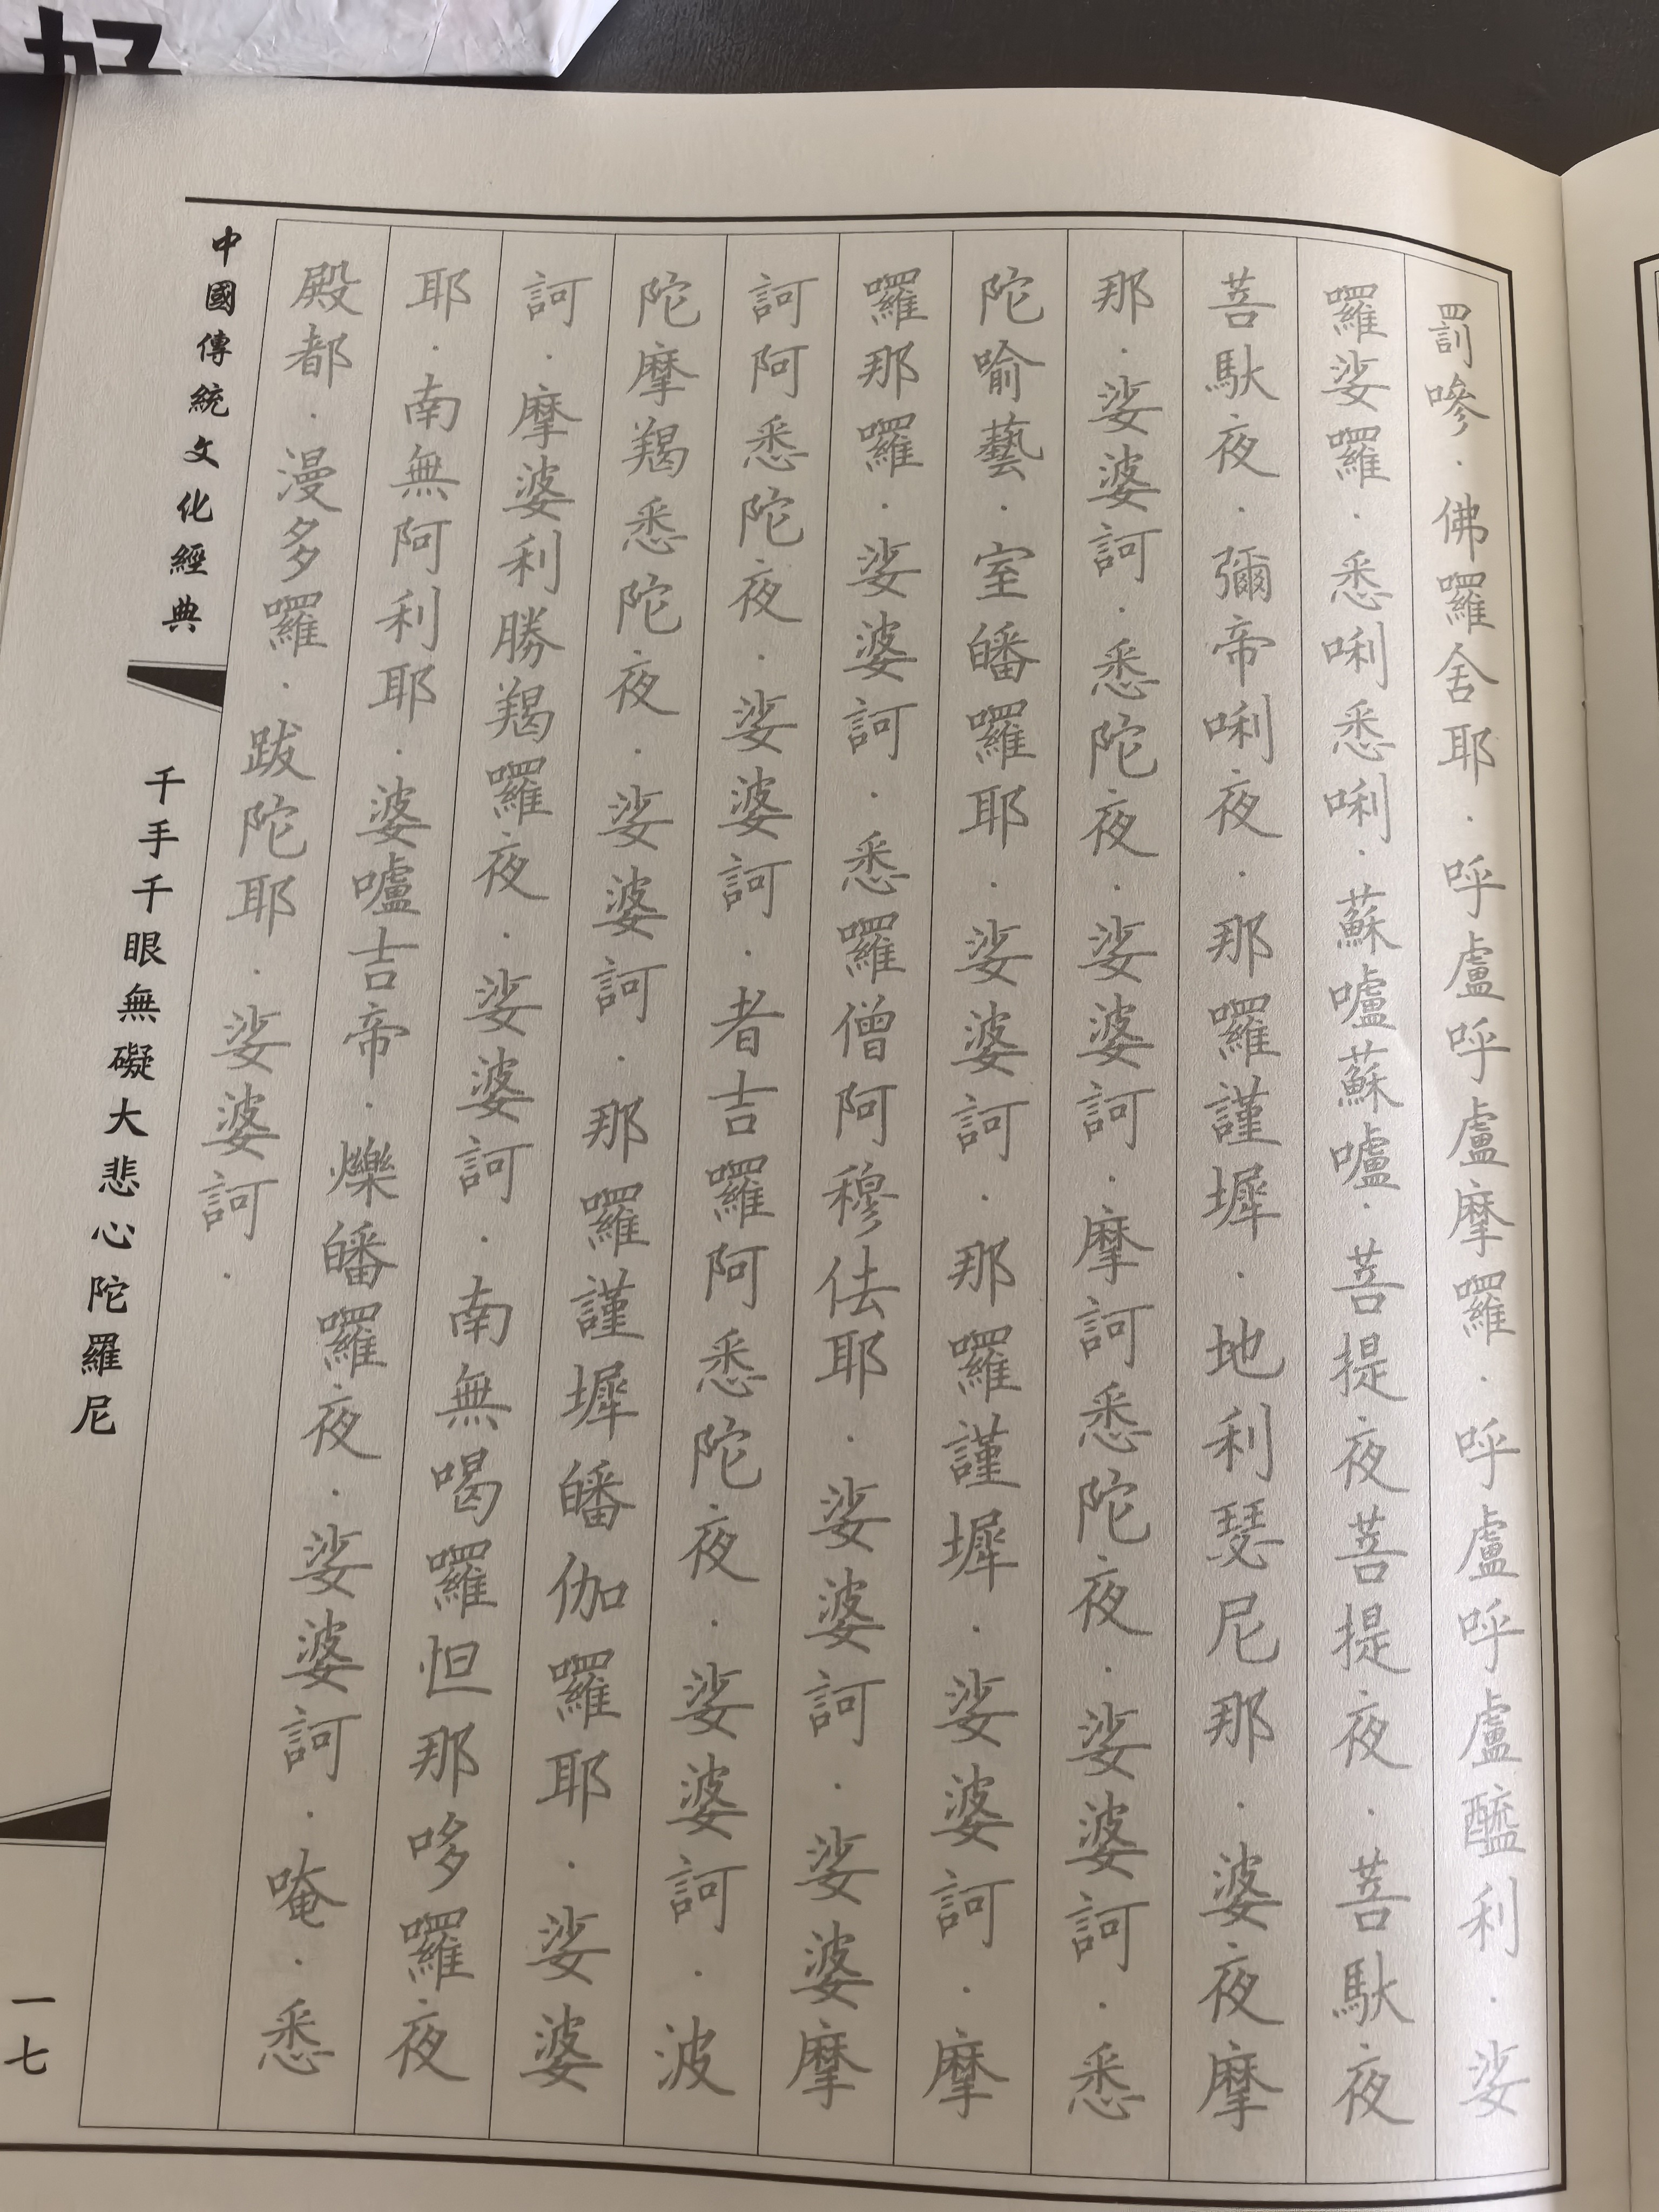 罰嘇．佛囉舍耶．呼盧呼盧摩囉．呼盧呼盧醯利．娑
囉娑囉．悉唎悉唎．蘇嚧蘇嚧．菩提夜菩提夜．菩馱夜
菩馱夜．彌帝唎夜．那囉謹墀．地利瑟尼那．婆夜摩
那．娑婆訶．悉陀夜．娑婆訶．摩訶悉陀夜．娑婆訶．悉
陀喻藝．室皤囉耶．娑婆訶．那囉謹墀．娑婆訶．摩
囉那囉．娑婆訶．悉囉僧阿穆佉耶．娑婆訶．娑婆摩
訶阿悉陀夜．娑婆訶．者吉囉阿悉陀夜．娑婆訶．波
陀摩羯悉陀夜．娑婆訶．那囉謹墀皤伽囉耶．娑婆
訶．摩婆利勝羯囉夜．娑婆訶．南無喝囉怛那哆囉夜
耶．南無阿利耶．婆嚧吉帝．爍皤囉夜．娑婆訶．唵．悉
殿都．漫多囉．跋陀耶．娑婆訶．
中國傳統文化經典
千手千眼無礙大悲心陀羅尼
一七
好